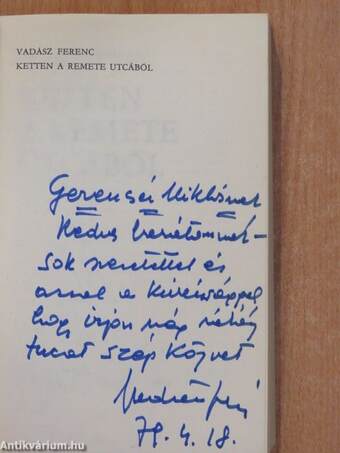 VADÁSZ FERENC
KETTEN A REMETE UTCÁBÓL
Gerencsér Miklósnak
Kedves barátomnak –
sok szeretettel és
azzal a kívánsággal
hogy írjon még néhány
tucat szép könyvet
Vadász Feri
79. 4. 18.
Antikvárium.hu